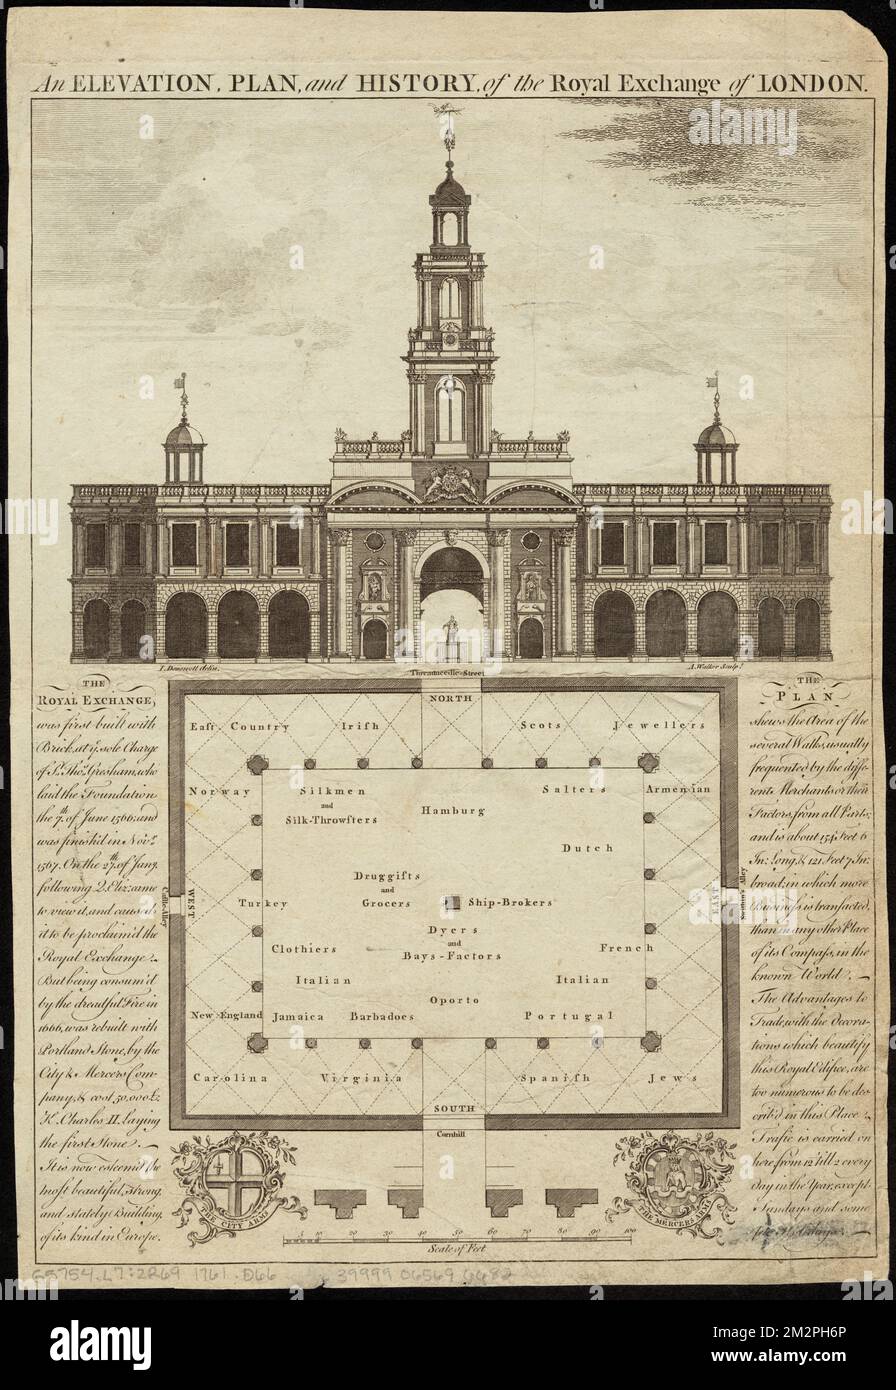 An ELEVATION, PLAN, and HISTORY, of the Royal Exchange of LONDON.
I. Donowell delin.
A. Walker Sculp.t
Threadneedle-Street
THE
ROYAL EXCHANGE,
was first built with
Brick, at y.e sole Charge
of S.r Tho.s Gresham, who
laid the Foundation
the 7.th of June 1566; and
was finish'd in Nov.r
1567. On the 27.th of Jan.y
following Q. Eliz: came
to view it, and caused
it to be proclaim'd the
Royal Exchange.
But being consum'd
by the dreadful Fire in
1666, was rebuilt with
Portland Stone, by the
City & Mercers Com-
pany, & cost 50,000 £;
K. Charles II. laying
the first Stone.
It is now esteem'd the
most beautiful, strong,
and stately Building,
of its kind in Europe.
NORTH
East-Country
Irish
Scots
Jewellers
Norway
Silkmen
and
Silk-Throwsters
Hamburg
Salters
Armenian
Dutch
Druggists
and
Grocers
Ship-Brokers
WEST
Turkey
EAST
Sweetings Alley
Castle-Alley
Dyers
and
Bays-Factors
Clothiers
French
Italian
Italian
Oporto
New-England
Jamaica
Barbadoes
Portugal
Carolina
Virginia
Spanish
Jews
SOUTH
Cornhill
THE
PLAN
shews the Area of the
several Walks, usually
frequented by the diffe-
rent Merchants or their
Factors, from all Parts;
and is about 154 Feet 6
In: Long, & 121 Feet 7 In:
broad; in which more
Business is transacted,
than in any other Place
of its Compass, in the
known World.
The Advantages to
Trade, with the Decora-
tions which beautify
this Royal Edifice, are
too numerous to be des
crib'd in this Place.
Trafic is carried on
here from 12 till 2 every
day in the Year, except
Sundays and some
few Holidays.
THE CITY ARMS
THE MERCERS ARMS
10 20 30 40 50 60 70 80 90 100
Scale of Feet
G5754.L7:2R69 1761 .D66
39999 06569 6682
alamy
alamy
Image ID: 2M2PH6P
www.alamy.com